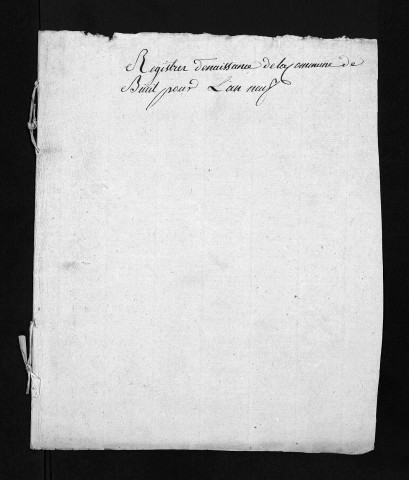 Registres denaissance dela Commune de
Bueil pour L'an neuf